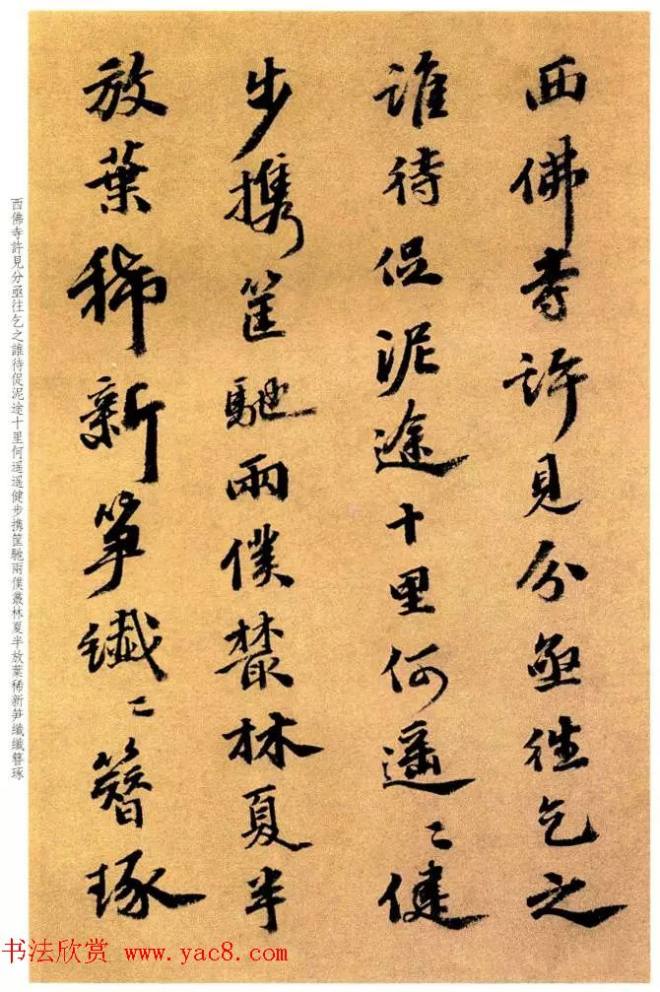 西佛寺許見分亟往乞之
誰待促泥途十里何遥〻健
步携筐馳兩僕叢林夏半
放葉稀新笋纖〻簪琢
西佛寺許見分亟往乞之誰待促泥途十里何遥遥健步携筐馳兩僕叢林夏半放葉稀新笋纖纖簪琢
书法欣赏 www.yac8.com